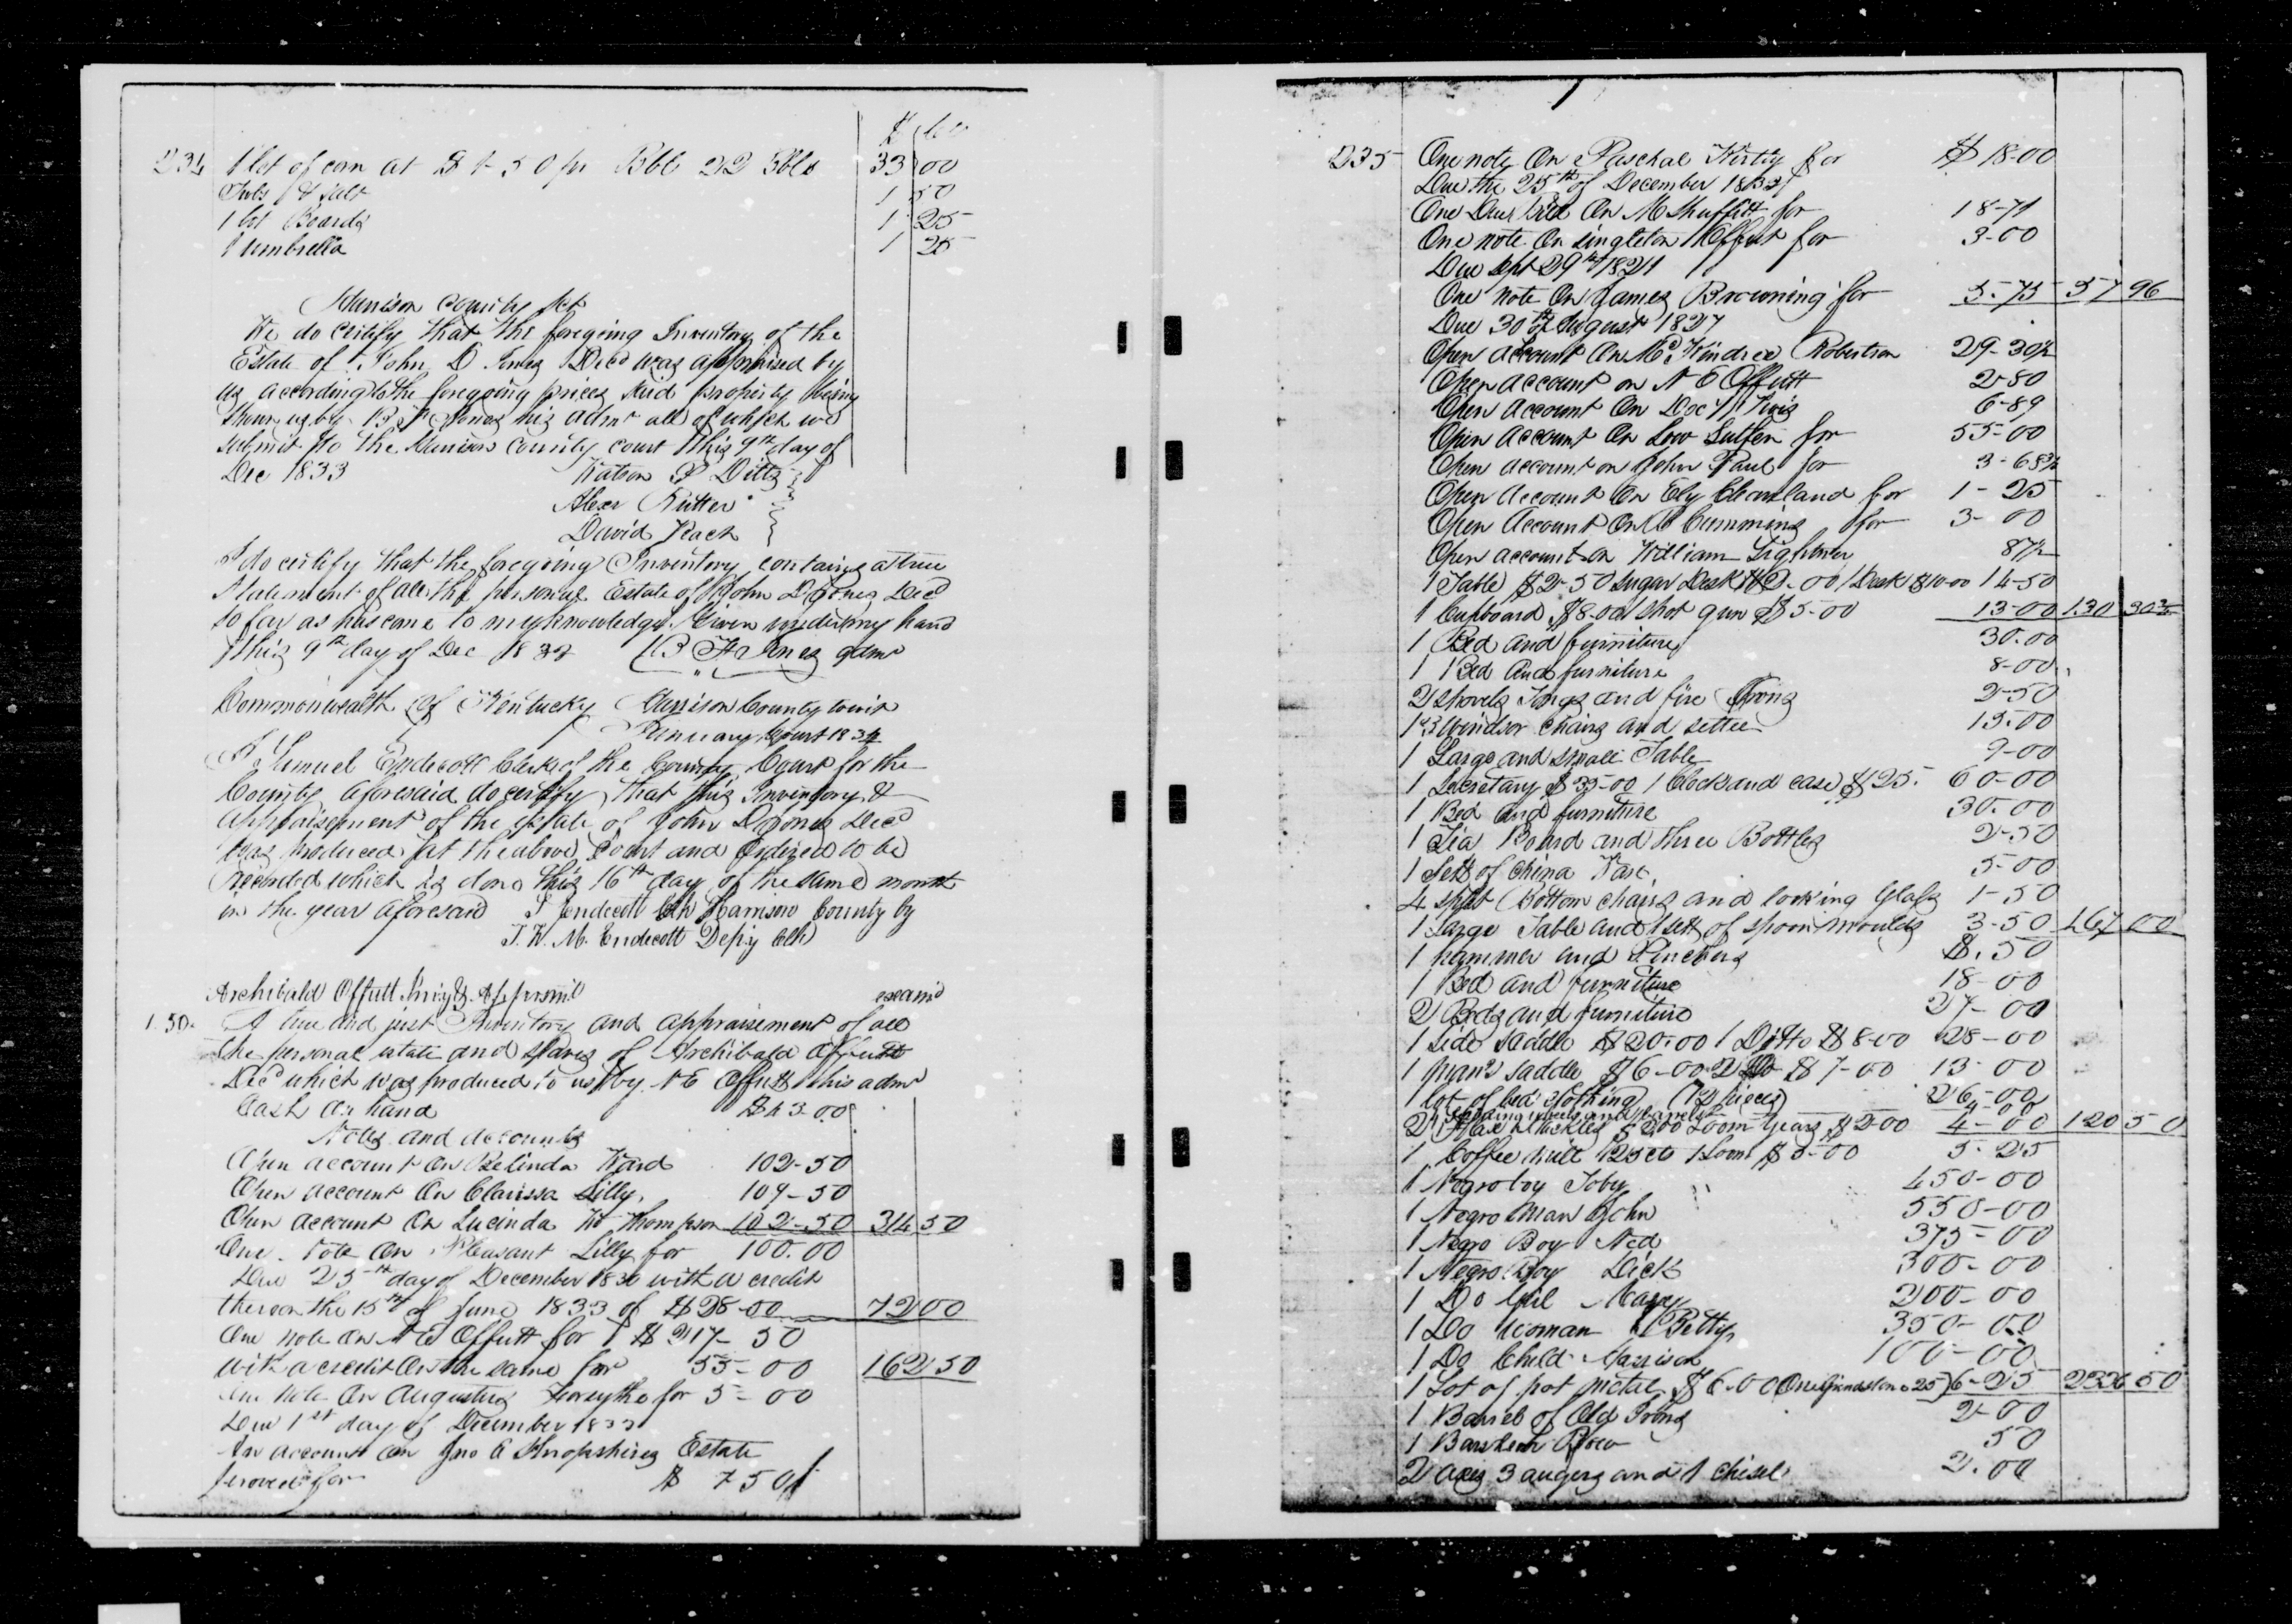 $ cts
234 1 lot of corn at $1-50 pr Bbl 22 Bbls 33 00
Tubs & salt 1 50
1 lot Boards 1 25
1 umbrella 1 25
Harrison County Sct
We do certify that the foregoing Inventory of the
Estate of John D Jones Decd was appraised by
us according to the foregoing prices said property being
shown us by B F Jones his admr all of which we
submit to the Harrison County court this 9th day of
Dec 1833 Watson P Ditto
Alexr Rutter
David Veach
I do certify that the foregoing Inventory contains a true
Statement of all the personal Estate of John D Jones Decd
so far as has come to my knowledge. Given under my hand
this 9th day of Dec 1833 B F Jones admr
Commonwealth of Kentucky Harrison County towit
January Court 1834
I Samuel Endecott Clerk of the County Court for the
County aforesaid do certify that this Inventory &
Appraisement of the estate of John D Jones Decd
was produced at the above Court and Ordered to be
recorded which is done this 16th day of the same month
in the year aforesaid S Endecott Clk Harrison County by
J. W. M. Endecott Depy Clk
Archibald Offutt Inv & Apprsmt examd
1.50. A true and just Inventory and appraisement of all
the personal estate and slaves of Archibald Offutt
Decd which was produced to us by N E Offutt his admr
Cash on hand $43-00
Notes and accounts
Open account On Belinda Ward 102-50
Open account On Clarissa Lilly, 109-50
Open account On Lucinda W Thompson 102-50 314 50
One note On Pleasant Lilly for 100.00
Due 25th day of December 1830 with a credit
thereon the 15th of June 1833 of $28-00 72 00
One note On N E Offutt for $217-50
with a credit On the same for 55-00 162 50
One note On Augustus Forsythe for 5-00
Due 1st day of December 1833
An account on Jno A Shropshires Estate
proved for $ 7 50
235 One note On Paschal Kirtly for $18-00
Due the 25th of December 1832
One Due Bill On M Shuffitt for 18-71
One note On Singleton Offutt for 3-00
Due Sept 29th 1821
One note On James Browning for 5.75 57 96
Due 30th of August 1827
Open account On McKindree Robertson 29-30½
Open account on N E Offutt 2-80
Open Account On Doc 6-89
Open Account On Low for 55-00
Open account on John Paul for 3-68¾
Open Account On Ely Cleaveland for 1-25
Open Account On Cumming for 3-00
Open account on William 87½
1 Table $2-50 Sugar Desk $2-00 1 Desk $10-00 14-50
1 Cupboard $8.00 1 Shot gun $5-00 13-00 130 30¾
1 Bed and furniture 30.00
1 Bed and furniture 8-00
2 shovels Tongs and fire Irons 2-50
13 Windsor chairs and settee 15.00
1 Large and small Table 9-00
1 Secretary $35-00 1 Clock and case $25. 60-00
1 Bed and furniture 30.00
1 Tea Board and three Bottles 2-50
1 Sett of China Ware 5-00
4 split Bottom chairs and looking Glass 1-50
1 Large Table and 1 sett of spoon moulds 3-50 167 00
1 hammer and Pinchers $.50
1 Bed and furniture 18-00
2 Beds and furniture 27-00
1 Side Saddle $20.00 1 Ditto $8-00 28-00
1 Mans Saddle $6-00 2 Do $7-00 13-00
1 lot of bed clothing (12 pieces) 26-00
2 spinning wheels and 4-00
2 Flax Hackles $2.00 Loom Gears $2-00 4-00 120 50
1 Coffee mill 25 cts 1 Loom $5-00 5-25
1 Negro boy Toby 450-00
1 Negro Man John 550-00
1 Negro Boy Ned 375-00
1 Negro Boy Dick 300-00
1 Do Girl Mary 200-00
1 Do Woman Betty 350-00
1 Do Child Harrison 100-00
1 Lot of pot metal $6-00 One Grindstone 25 6-25 2336 50
1 Barrel of Old Irons 2-00
1 Barshear Plow 50
2 axes 3 augers and 1 chisel 2.00